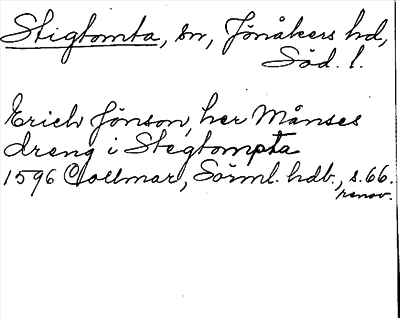 Stigtomta, sn, Jönåkers hd,
Söd. l.
Erich Jönson, her Månses
dreng i Stegtompta
1596 Collmar, Sörml. hdb., s. 66.
renov.